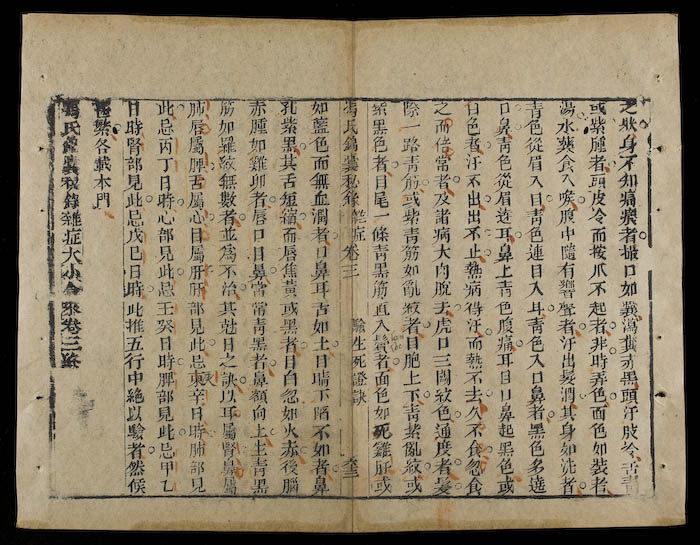 之狀身不知痛癢者撮口如囊瀉糞赤黑頭汗肢冷舌青
或紫腫者頭皮冷而按爪不起者非時弄色而色如裝者
湯水藥食入喉腹中隨有響聲者汗出髮潤其身如洗者
青色從眉入目青色連目入耳青色入口鼻者黑色多遶
口鼻青色從眉遶耳鼻上青色腹痛耳目口鼻起黑色或
白色者汗不出出不止熱病得汗而熱不去久不食忽食
之而倍常者及諸病大肉脫去虎口三關紋色通度者髮
際一路青筋或紫青筋如亂紋者目胞上下青紫亂紋或
紫黑色者目尾一條青黑筋直入鬢者面色如死雞肝或
馮氏錦囊秘錄 雜症 卷三 驗生死證訣
如藍色而無血潤者口鼻耳舌如土目睛下陷不如者鼻
孔紫黑其舌短縮而唇焦黃或黑者目白忽如火赤後腦
赤腫如雞卵者唇口目鼻常常青黑者鼻額向上生青黑
筋如羅紋無數者並為不治其尅日之訣以耳屬腎鼻屬
肺唇屬脾舌屬心目屬肝肝部見此忌庚辛日時肺部見
此忌丙丁日時心部見此忌壬癸日時脾部見此忌甲乙
日時腎部見此忌戊己日時此推五行中絕以驗者然候
色繁各載本門
馮氏錦囊秘錄雜症大小合叅卷三終